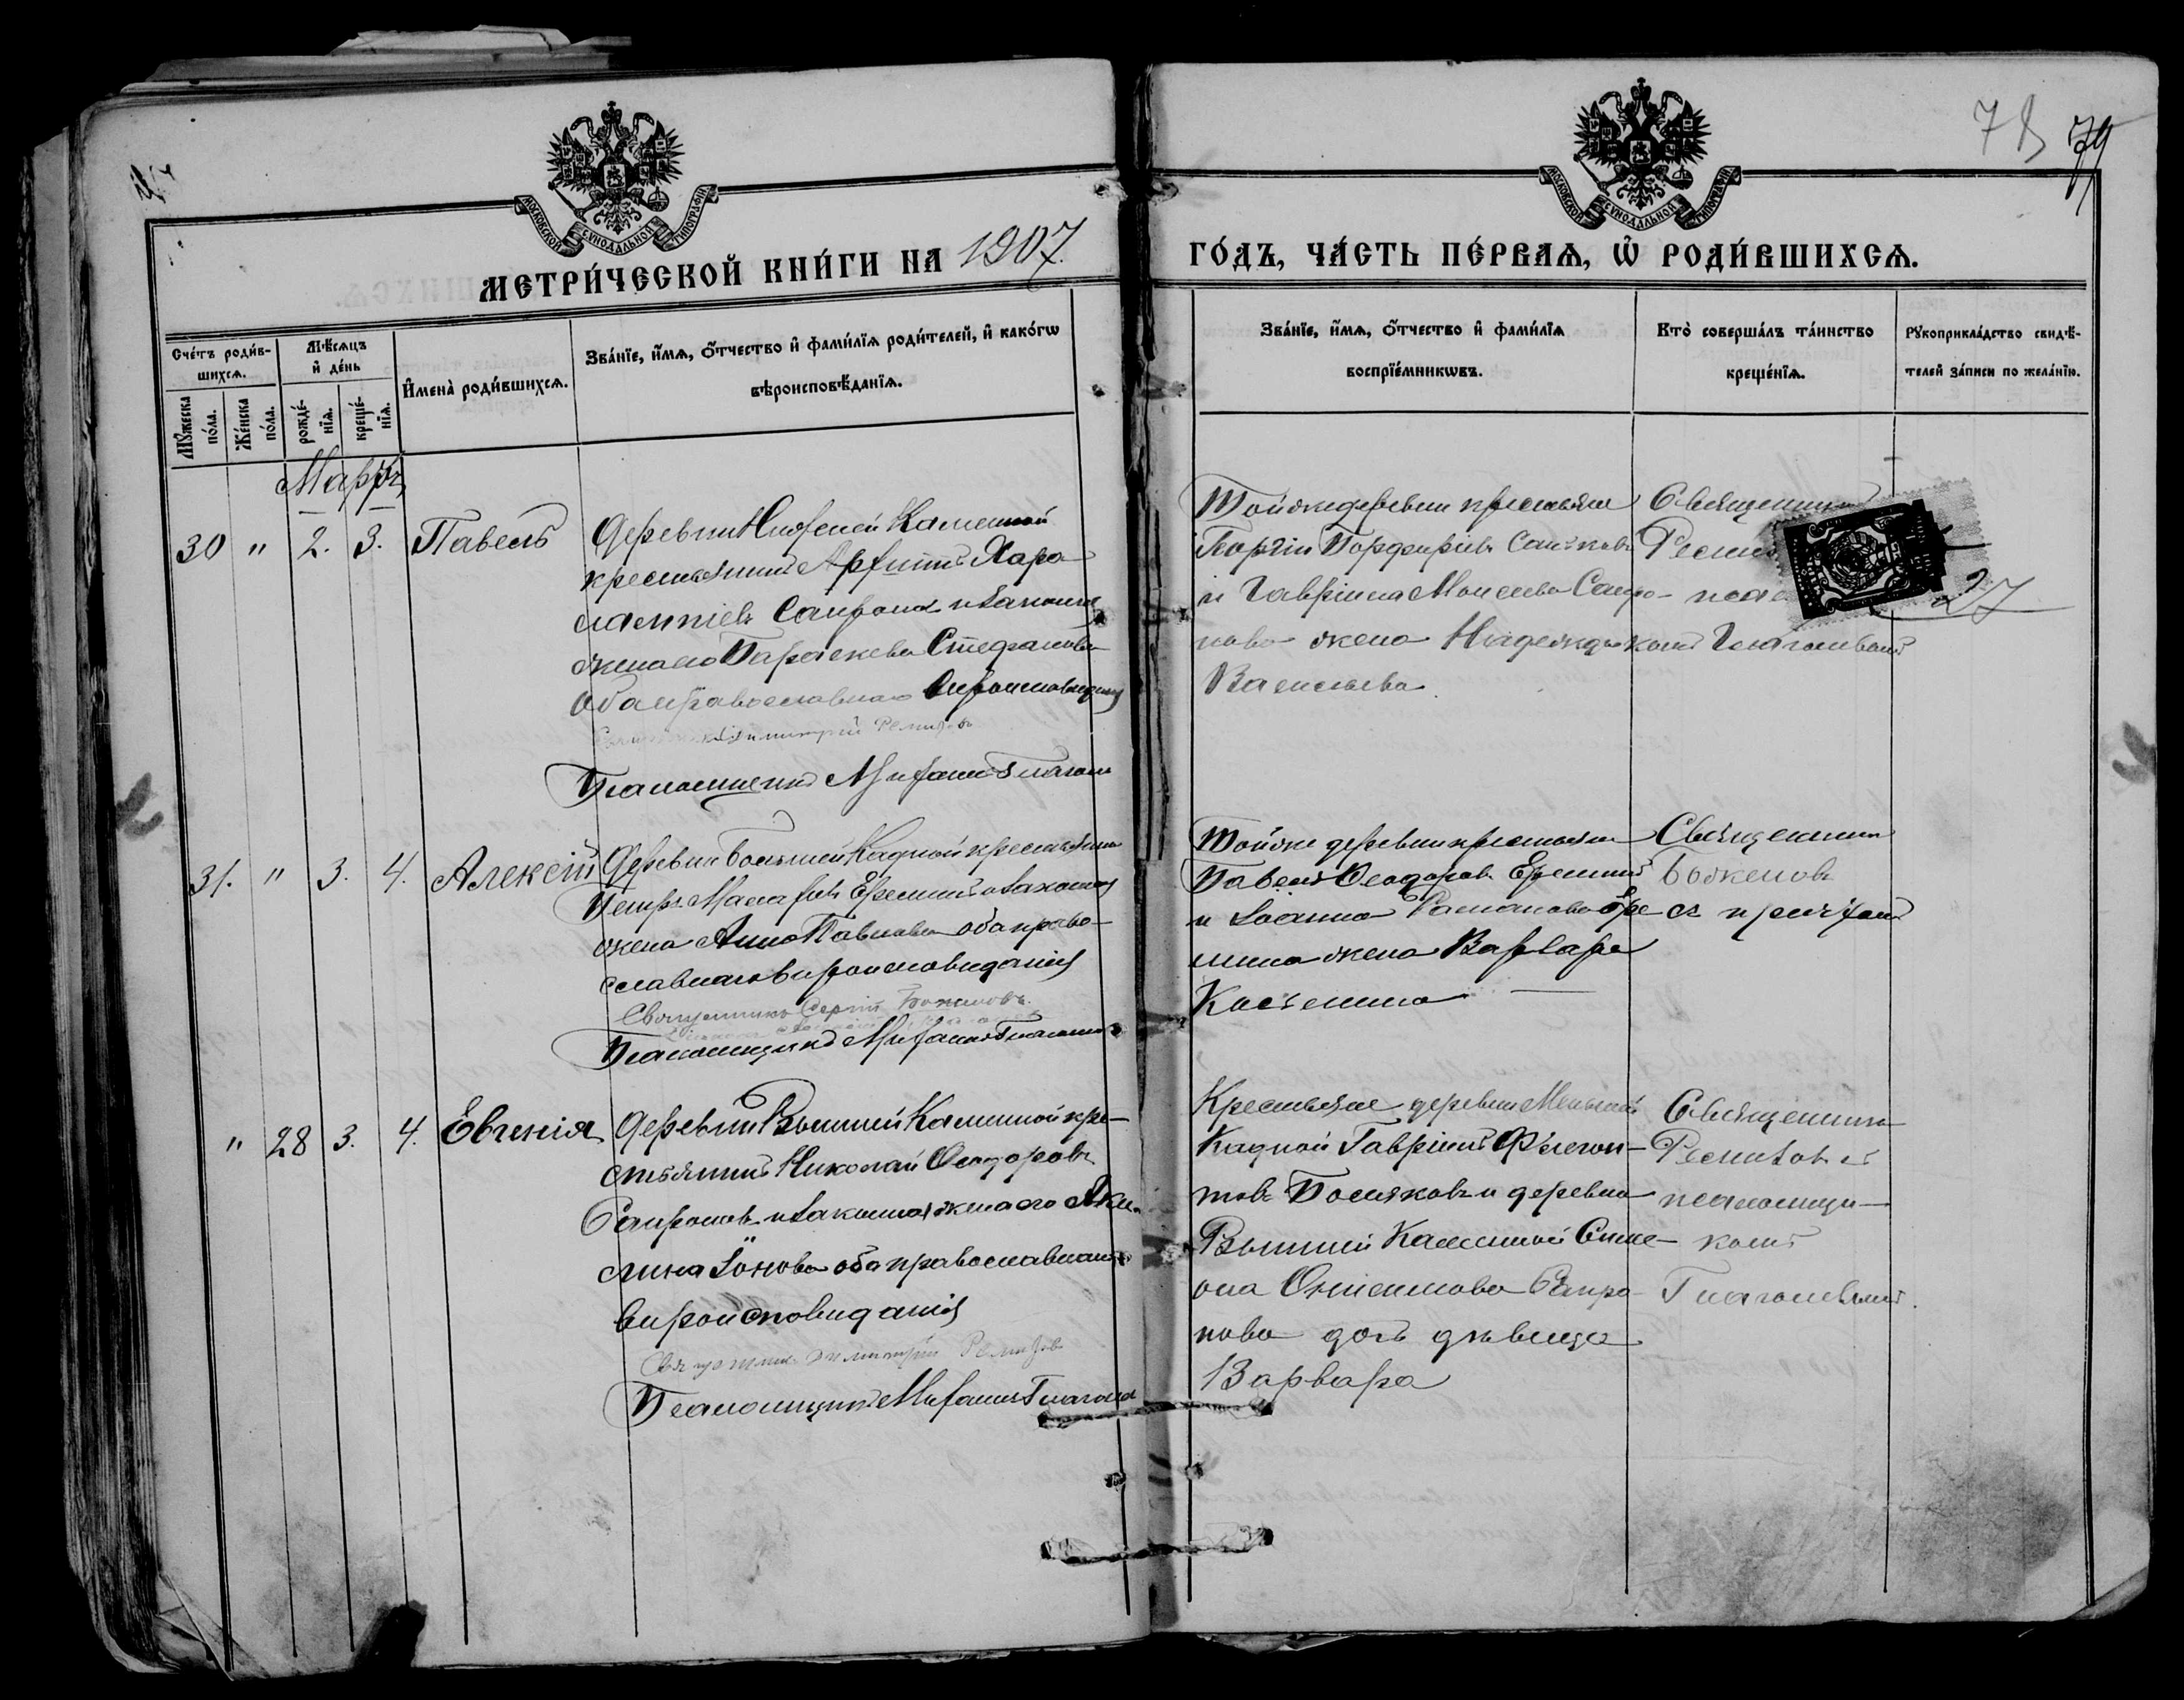 78 79
МОСКОВСКОЙ СѴНОДАЛЬНОЙ ТИПОГРАФІИ
МОСКОВСКОЙ СѴНОДАЛЬНОЙ ТИПОГРАФІИ
МЕТРИ́ЧЕСКОЙ КНИ́ГИ НА 1907.
ГО́ДЪ, ЧА́СТЬ ПЕ́РВАѦ, Ѡ҆ РОДИ́ВШИХСѦ.
Сче́тъ роди́в-
шихсѧ.
Мꙋжеска по́ла.
Же́нска по́ла.
Мѣ́сѧцъ
и҆ де́нь
рожде́-
нїѧ.
креще́-
нїѧ.
И҆мена̀ роди́вшихсѧ.
Зва́нїе, и҆́мѧ, ѻ҆́тчество и҆ фами́лїѧ роди́телей, и҆ како́гѡ
вѣроисповѣ́данїѧ.
Зва́нїе, и҆́мѧ, ѻ҆́тчество и҆ фами́лїѧ
воспрїе́мникѡвъ.
Кто̀ соверша́лъ та́инство
креще́нїѧ.
Рꙋкоприкла́дство свидѣ́-
телей за́писи по жела́нїю.
Мартъ
30 " 2. 3. Павелъ
Деревни Нижней Каменной
крестьянинъ Харо-
лампіевъ Сапронов и законная
жена его Параскева Стефанова
оба православнаго вѣроисповѣданія
Священникъ Димитрій Ремизовъ
Псаломщикъ Митрофанъ Глаголев
Той же деревни крестьяне
Георгій Порфиріевъ
и Гавріила Моисеева Сапро-
нова жена Надежда
Васильева.
Священник
комъ Глаголевымъ
27
31. " 3. 4. Алексій
Деревни Большей Кадной крестьянинъ
Петръ Еремин и законная
жена Анна Павлова оба право-
славнаго вѣроисповѣданія
Священникъ Сергій Боженовъ.
Псаломщикъ Митрофанъ Глаголев
Той же деревни крестьяне
Павелъ Ѳеодоровъ Ереминъ
и Іоанна Романова Ере-
мина жена Варвара
Косьмина
Священник
Боженовъ
съ причтомъ
" 28 3. 4. Евгенія
Деревни Вышней Каменной кре-
стьянинъ Николай Ѳеодоровъ
Сапроновъ и законная жена его Аки-
лина Іонова оба православнаго
вѣроисповѣданія
Священникъ Димитрій Ремизовъ
Псаломщикъ Митрофанъ Глаголев
Крестьяне деревни Меньшей
Кадной Гавріилъ Флегон-
товъ Поляковъ и деревни
Вышней Каменной Симе-
она Сапро-
нова дочь дѣвица
Варвара
Священник
Ремизовъ съ
псаломщи-
комъ
Глаголевымъ.